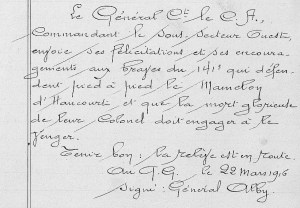 Le Général Ct le C.A.,
Commandant le Sous-Secteur Ouest,
envoie ses félicitations et ses encoura-
gements aux braves du 141e qui défen-
dent pied à pied le Mamelon
d'Haucourt et que la mort glorieuse
de leur Colonel doit engager à le
venger.
Tenir bon; la relève est en route.
Au Q.G. le 22 Mars 1916
Signé: Général Alby.